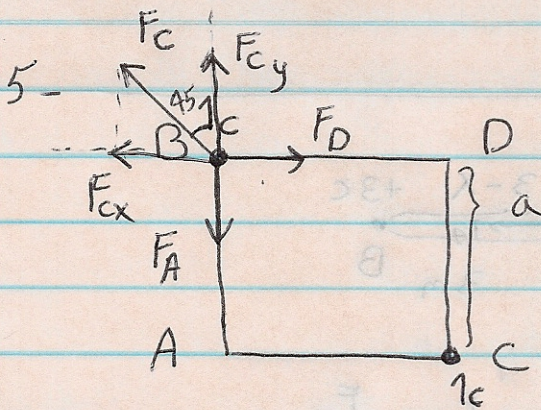 5-
F_C
F_Cy
45
1c
B
F_D
D
F_Cx
a
F_A
A
C
1c